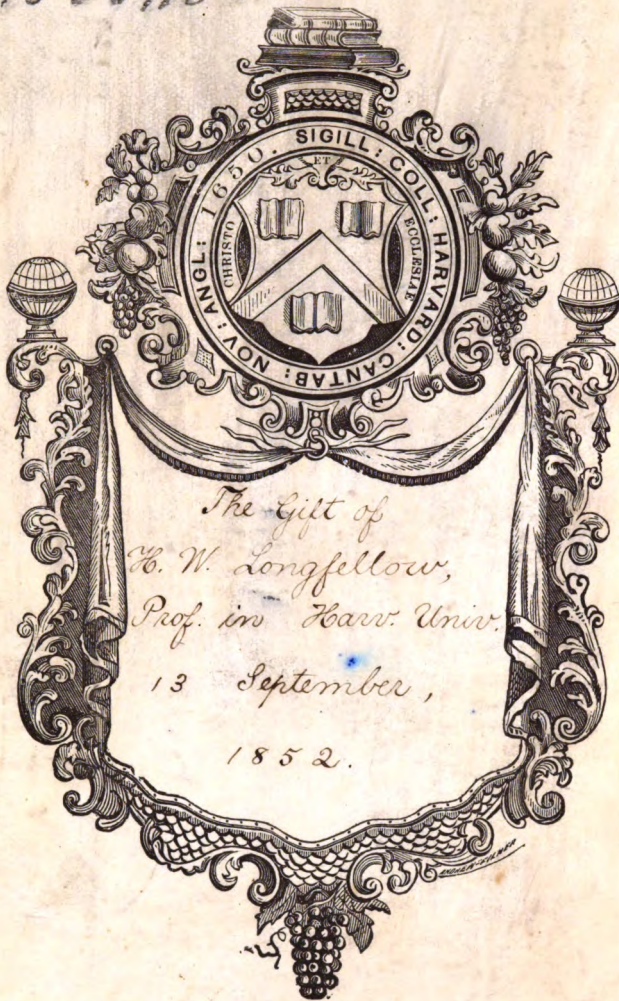 SIGILL: COLL: HARVARD: CANTAB: NOV: ANGL: 1650.
CHRISTO ET ECCLESIAE
The Gift of
H. W. Longfellow,
Prof. in Harv. Univ.
13 September,
1852.